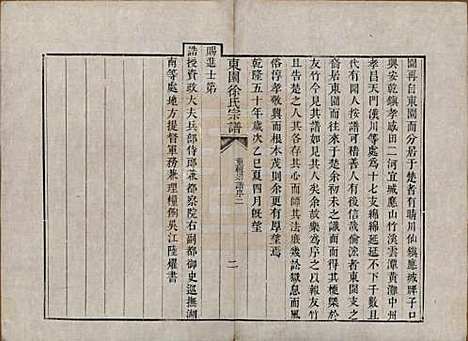 園再自東園而分居于楚者有晴川仙鎮應城胖子口
興安乾鎮孝感田二河宜城應山竹溪雲潭黃灘中州
孝昌天門漢川等處為十七支綿綿延延不下千數且
代有聞人按譜可稽善人有後哉倘流者東園支之
裔居東園而往來于楚余初未之識而得其梗槩於
友竹今見其譜如見其人矣余故樂為序之以報友竹
且告楚之人其各存其心而師其法庶幾訟獄息而風
俗淳孝敬興而根本茂則余更有厚望焉
乾隆五十年歲次乙巳夏四月既望
賜進士第
誥授資政大夫兵部侍郎兼都察院右副都御史巡撫湖
南等處地方提督軍務兼理糧餉吳江陸燿書
東園徐氏宗譜
二